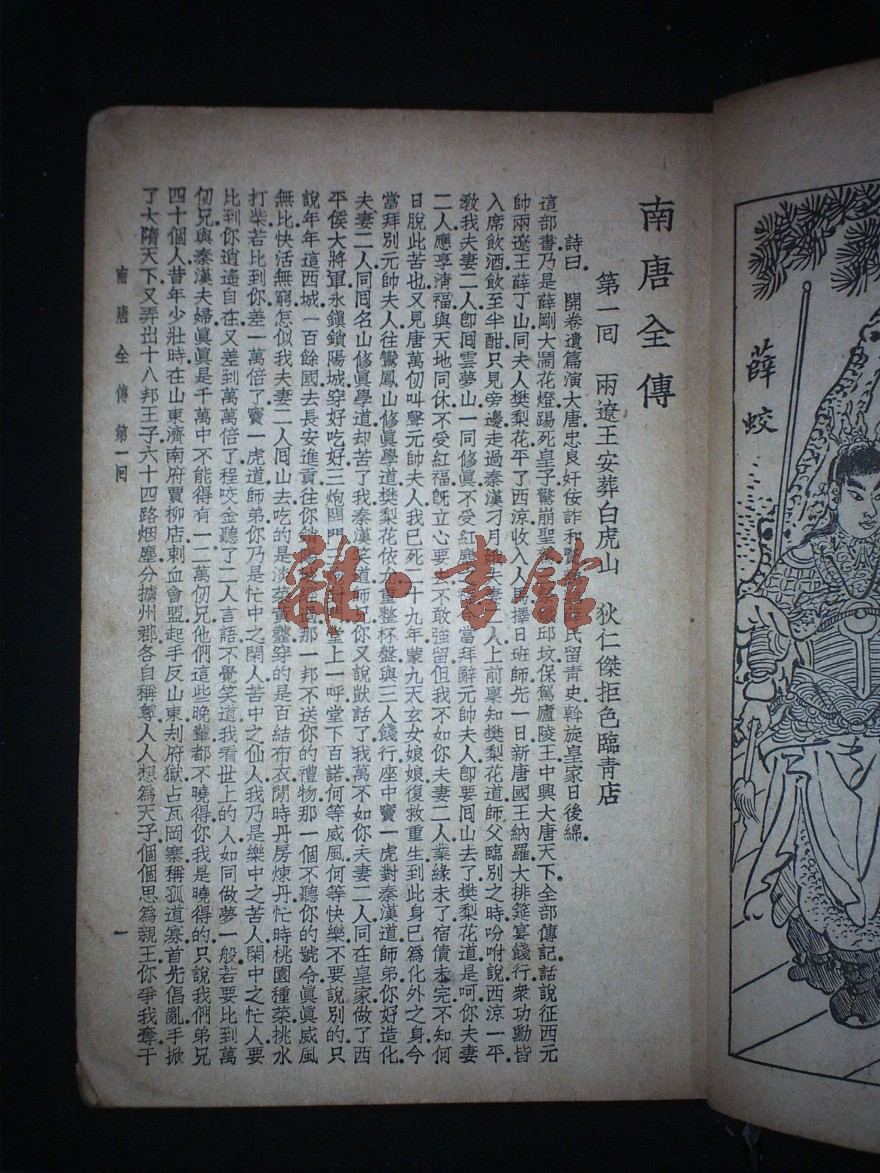 薛蛟
南唐全傳
第一回　兩遼王安葬白虎山　狄仁傑拒色臨青店
詩曰　開卷遺篇演大唐忠良奸佞詐和　氏留靑史斡旋皇家日後綿
這部書乃是薛剛大鬧花燈踢死皇子驚崩聖　邱坟保駕廬陵王中興大唐天下全部傳記話說征西元
帥兩遼王薛丁山同夫人樊梨花平了西凉收入人馬擇日班師先一日新唐國王納羅大排筵宴餞行衆功勳皆
入席飲酒飲至半酣只見旁邊走過秦漢刁月　夫妻二人上前稟知樊梨花道師父臨別之時吩咐說西凉一平
敎我夫妻二人卽囘雲夢山一同修眞不受紅塵　當拜辭元帥夫人卽要囘山去了樊梨花道是呵你夫妻
二人應享淸福與天地同休不受紅福旣立心要　不敢強留但我不如你夫妻二人業緣未了宿債未完不知何
日脫此苦也又見唐萬仞叫聲元帥夫人我已死　十九年蒙九天玄女娘娘復救重生到此身已爲化外之身今
當拜別元帥夫人往鸞鳳山修眞學道樊梨花依允重整杯盤與三人餞行座中竇一虎對秦漢道師弟你好造化
夫妻二人同囘名山修眞學道却苦了我秦漢笑道師兄你又說獃話了我萬不如你夫妻二人同在皇家做了西
平侯大將軍永鎭鎖陽城穿好吃好三炮開門　堂上一呼堂下百諾何等威風何等快樂不要說別的只
說年年這西城一百餘國去長安進貢往你鎖　那一邦不送你的禮物那一個不聽你的號令眞眞威風
無比快活無窮怎似我夫妻二人囘山去吃的是淡茶黃虀穿的是百結布衣閒時丹房煉丹忙時桃園種菜挑水
打柴若比到你差一萬倍了竇一虎道師弟你乃是忙中之閑人苦中之仙人我乃是樂中之苦人閑中之忙人要
比到你逍遙自在又差到萬萬倍了程咬金聽了二人言語不覺笑道我看世上的人如同做夢一般若要比到萬
仞兄與秦漢夫婦眞眞是千萬中不能得有一二萬仞兄他們這些晚輩都不曉得你我是曉得的只說我們弟兄
四十個人昔年少壯時在山東濟南府賈柳店刺血會盟起手反山東刦府獄占瓦岡寨稱孤道寡首先倡亂手掀
了大隋天下又弄出十八邦王子六十四路烟塵分據州郡各自稱尊人人想爲天子個個思爲親王你爭我奪干
南唐全傳　第一回　一
雜·書館